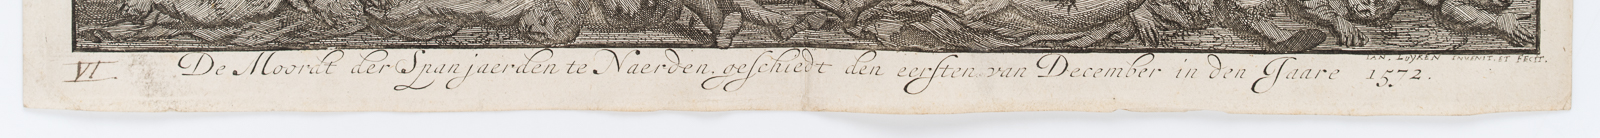 IAN. LUYKEN INVENIT. ET FECIT.
VI De Moordt der Spanjaerden te Naerden. geschiedt den eersten van December in den Jaare 1572.